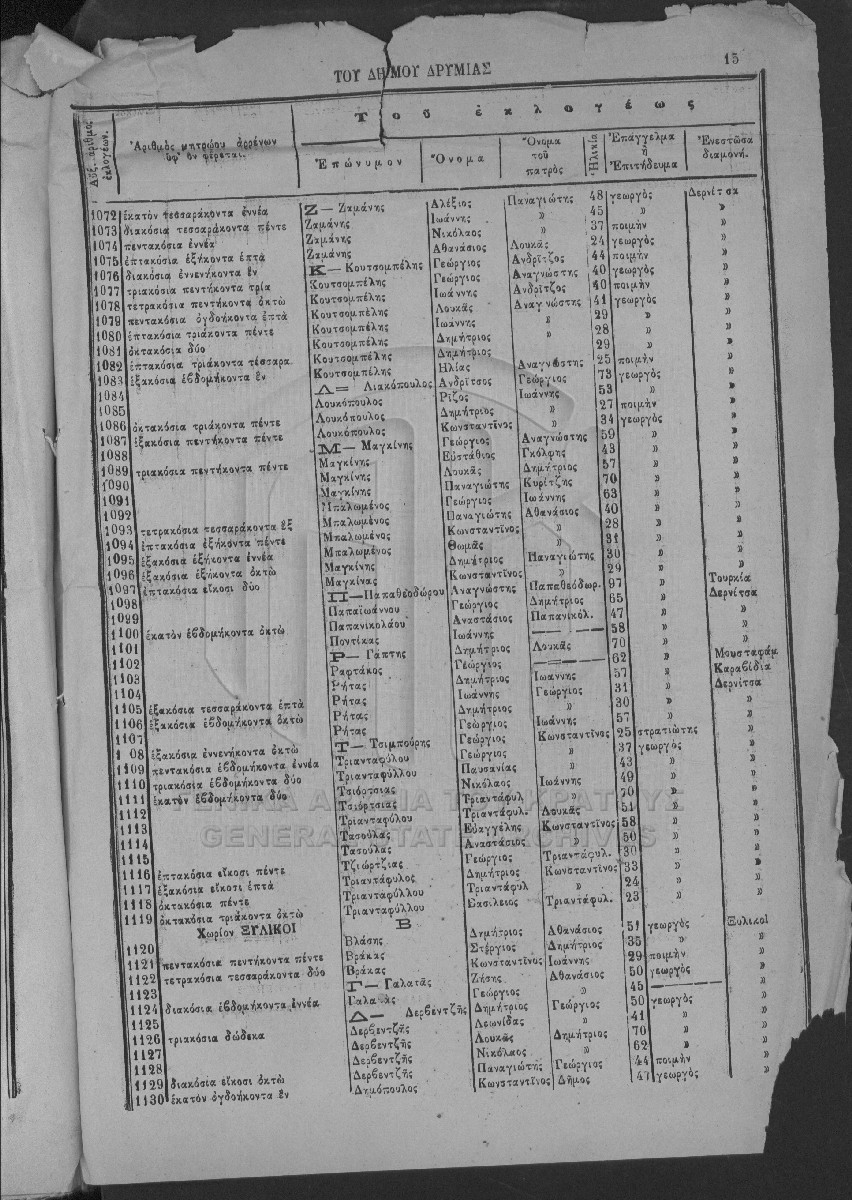 ΤΟΥ ΔΗΜΟΥ ΔΡΥΜΙΑΣ 15
Αὔξ. ἀριθμὸς ἐκλογέων. Ἀριθμὸς μητρώου ἀῤῥένων ὑφ' ὃν φέρεται. Τοῦ ἐκλογέως
Ἐπώνυμον Ὄνομα Ὄνομα τοῦ πατρὸς Ἡλικία Ἐπάγγελμα ἢ Ἐπιτήδευμα Ἐνεστῶσα διαμονή.
1072 ἑκατὸν τεσσαράκοντα ἐννέα Ζ— Ζαμάνης Ἀλέξιος Παναγιώτης 48 γεωργὸς Δερνίτσα
1073 διακόσια τεσσαράκοντα πέντε Ζαμάνης Ἰωάννης » 45 » »
1074 πεντακόσια ἐννέα Ζαμάνης Νικόλαος » 37 ποιμὴν »
1075 ἑπτακόσια ἑξήκοντα ἑπτὰ Ζαμάνης Ἀθανάσιος Λουκᾶς 24 γεωργὸς »
1076 διακόσια ἐννενήκοντα ἓν Κ— Κουτσομπέλης Γεώργιος Ἀνδρῖτζος 44 ποιμὴν »
1077 τριακόσια πεντήκοντα τρία Κουτσομπέλης Γεώργιος Ἀναγνώστης 40 γεωργὸς »
1078 τετρακόσια πεντήκοντα ὀκτὼ Κουτσομπέλης Ἰωάννης Ἀνδρῖτζος 40 ποιμὴν »
1079 πεντακόσια ὀγδοήκοντα ἑπτὰ Κουτσομπέλης Λουκᾶς Ἀναγνώστης 41 γεωργὸς »
1080 ἑπτακόσια τριάκοντα πέντε Κουτσομπέλης Ἰωάννης » 29 » »
1081 ὀκτακόσια δύο Κουτσομπέλης Δημήτριος » 28 » »
1082 ἑπτακόσια τριάκοντα τέσσαρα Κουτσομπέλης Δημήτριος 29 » »
1083 ἑξακόσια ἑβδομήκοντα ἓν Κουτσομπέλης Ἠλίας Ἀναγνώστης 25 ποιμὴν »
1084 Λ= Λιακόπουλος Ἀνδρῖτσος Γεώργιος 73 γεωργὸς »
1085 Λουκόπουλος Ρῖζος Ἰωάννης 53 » »
1086 ὀκτακόσια τριάκοντα πέντε Λουκόπουλος Δημήτριος » 27 ποιμὴν »
1087 ἑξακόσια πεντήκοντα πέντε Λουκόπουλος Κωνσταντῖνος » 34 γεωργὸς »
1088 Μ— Μαγκίνης Γεώργιος Ἀναγνώστης 59 » »
1089 τριακόσια πεντήκοντα πέντε Μαγκίνης Εὐστάθιος Γκόλφης 43 » »
1090 Μαγκίνης Λουκᾶς Δημήτριος 57 » »
1091 Μαγκίνης Παναγιώτης Κυρίτζης 70 » »
1092 Μπαλωμένος Γεώργιος Ἰωάννης 63 » »
1093 τετρακόσια τεσσαράκοντα ἓξ Μπαλωμένος Παναγιώτης Ἀθανάσιος 40 » »
1094 ἑπτακόσια ἑξήκοντα πέντε Μπαλωμένος Κωνσταντῖνος » 28 » »
1095 ἑξακόσια ἑξήκοντα ἐννέα Μπαλωμένος Θωμᾶς » 31 » »
1096 ἑξακόσια ἑξήκοντα ὀκτὼ Μαγκίνης Δημήτριος Παναγιώτης 30 » »
1097 ἑπτακόσια εἴκοσι δύο Μαγκίνας Κωνσταντῖνος » 29 » »
1098 Π—Παπαθεοδώρου Ἀναγνώστης Παπαθεόδωρ. 97 » Τουρκία
1099 Παπαϊωάννου Γεώργιος Δημήτριος 65 » Δερνίτσα
1100 ἑκατὸν ἑβδομήκοντα ὀκτὼ Παπανικολάου Ἀναστάσιος Παπανικόλ. 47 » »
1101 Ποντίκας Ἰωάννης —— 58 » »
1102 Ρ— Γάπτης Δημήτριος Λουκᾶς 70 » »
1103 Ραφτάκος Γεώργιος —=— 62 » Μουσταφάμ
1104 Ρήτας Δημήτριος Ἰωάννης 57 » Καραβίδια
1105 ἑξακόσια τεσσαράκοντα ἑπτὰ Ρήτας Ἰωάννης Γεώργιος 31 » Δερνίτσα
1106 ἑξακόσια ἑβδομήκοντα ὀκτὼ Ρήτας Δημήτριος » 30 » »
1107 Ρήτας Γεώργιος Ἰωάννης 57 » »
1108 ἑξακόσια ἐννενήκοντα ὀκτὼ Τ— Τσιμπούρης Γεώργιος Κωνσταντῖνος 25 στρατιώτης »
1109 πεντακόσια ἑβδομήκοντα ἐννέα Τριανταφύλου Γεώργιος » 37 γεωργὸς »
1110 τριακόσια ἑβδομήκοντα δύο Τριανταφύλλου Παυσανίας » 43 » »
1111 ἑκατὸν ἑβδομήκοντα δύο Τσιόρτσιας Νικόλαος Ἰωάννης 49 » »
1112 Τσιόρτσιας Τριαντάφυλ » 70 » »
1113 Τριανταφύλου Τριαντάφυλ. Λουκᾶς 51 » »
1114 Τασούλας Εὐαγγέλης Κωνσταντῖνος 58 » »
1115 Τασούλας Ἀναστάσιος » 50 » »
1116 ἑπτακόσια εἴκοσι πέντε Τζιώρτζιας Γεώργιος Τριαντάφυλ. 30 » »
1117 ἑξακόσια εἴκοσι ἑπτὰ Τριαντάφυλος Δημήτριος Κωνσταντῖνος 33 » »
1118 ὀκτακόσια πέντε Τριανταφύλλου Τριαντάφυλ » 24 » »
1119 ὀκτακόσια τριάκοντα ὀκτὼ Τριανταφύλλου Βασίλειος Τριαντάφυλ. 23 » »
Χωρίον ΞΥΛΙΚΟΙ Β
1120 Βλάσης Δημήτριος Ἀθανάσιος 51 γεωργὸς Ξυλικοὶ
1121 πεντακόσια πεντήκοντα πέντε Βράκας Στέργιος Δημήτριος 35 » »
1122 τετρακόσια τεσσαράκοντα δύο Βράκας Κωνσταντῖνος Ἰωάννης 29 ποιμὴν »
1123 Γ— Γαλατᾶς Ζήσης Ἀθανάσιος 50 γεωργὸς »
1124 διακόσια ἑβδομήκοντα ἐννέα Γαλατᾶς Γεώργιος 45 —— »
1125 Δ— Δερβεντζῆς Δημήτριος Γεώργιος 50 γεωργὸς »
1126 τριακόσια δώδεκα Δερβεντζῆς Λεωνίδας » 41 » »
1127 Δερβεντζῆς Λουκᾶς Δημήτριος 70 » »
1128 Δερβεντζῆς Νικόλαος » 62 » »
1129 διακόσια εἴκοσι ὀκτὼ Δερβεντζῆς Παναγιώτης Γεώργιος 44 ποιμὴν »
1130 ἑκατὸν ὀγδοήκοντα ἓν Δημόπουλος Κωνσταντῖνος Δῆμος 47 γεωργὸς »
ΓΕΝΙΚΑ ΑΡΧΕΙΑ ΤΟΥ ΚΡΑΤΟΥΣ
GENERAL STATE ARCHIVES